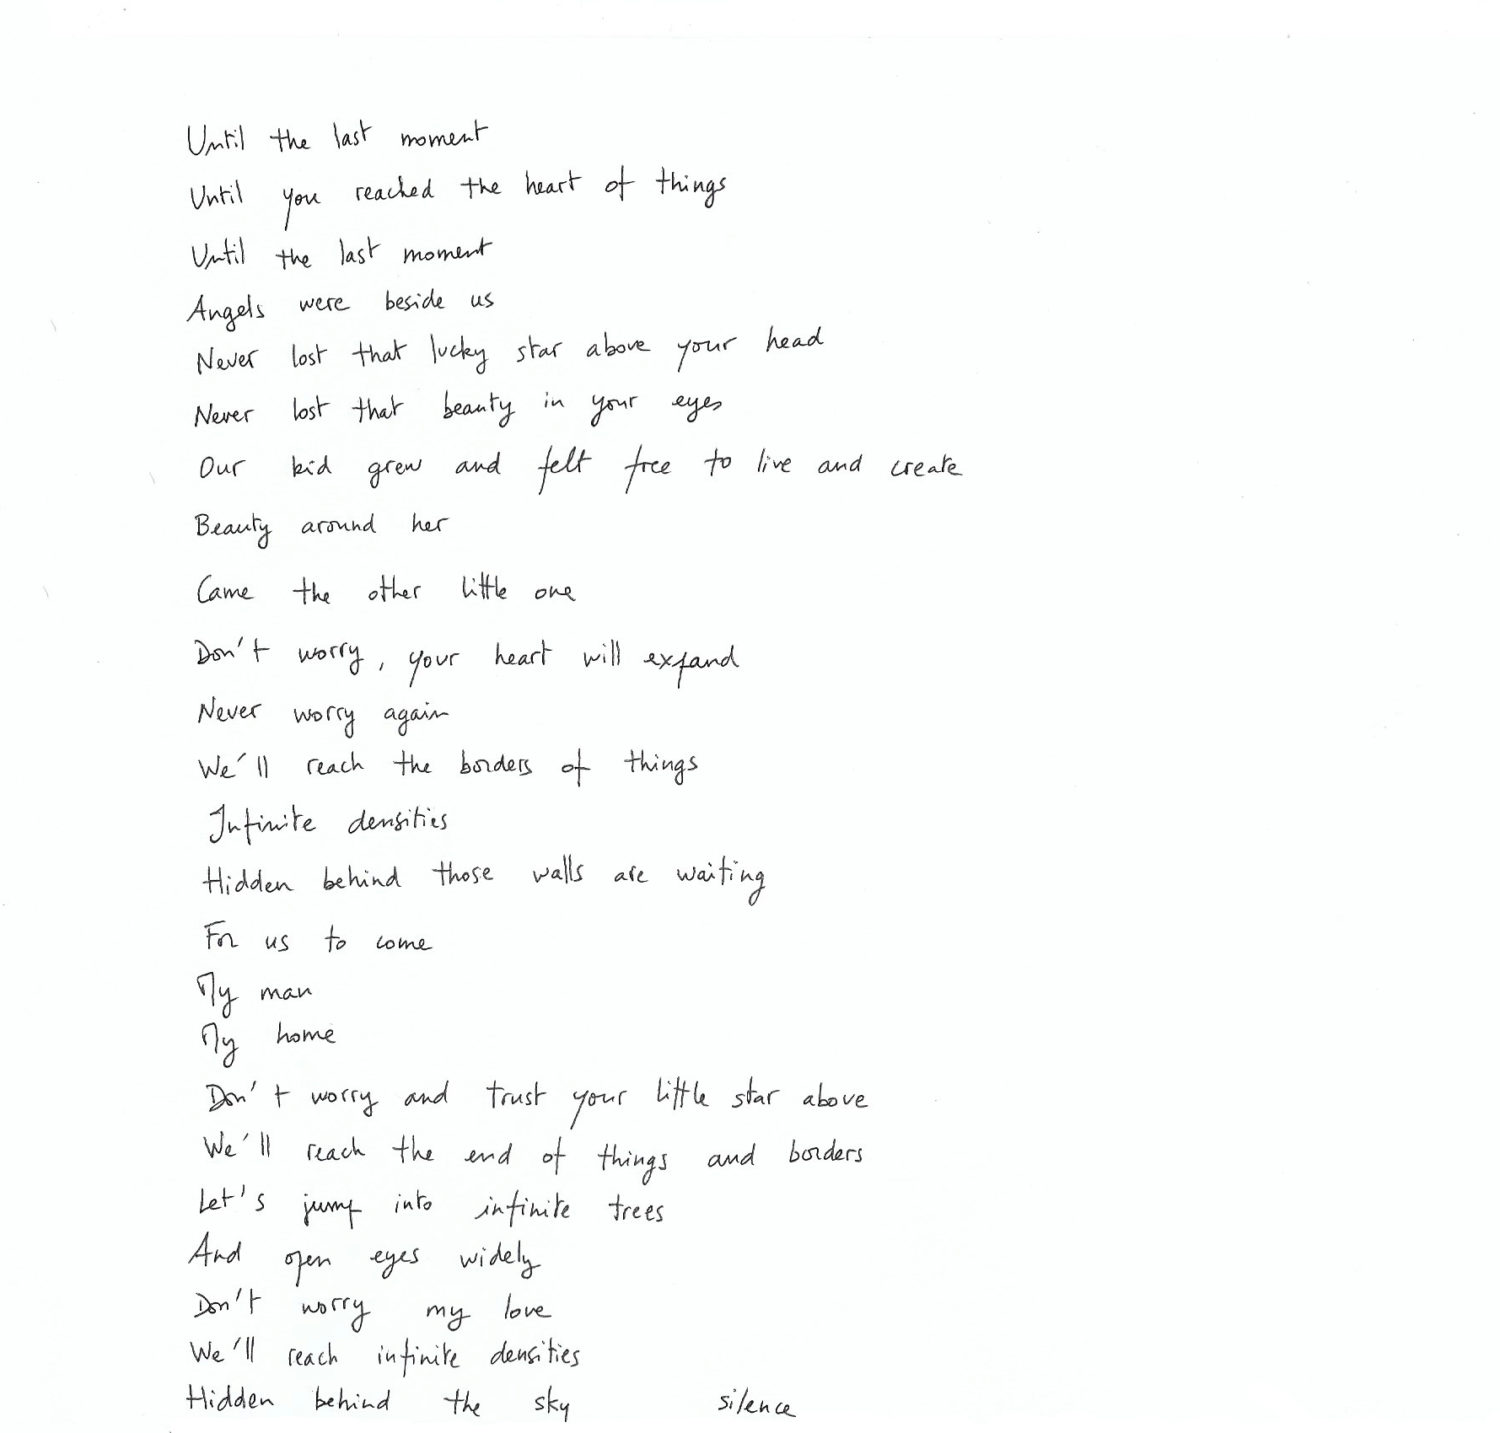 Until the last moment
Until you reached the heart of things
Until the last moment
Angels were beside us
Never lost that lucky star above your head
Never lost that beauty in your eyes
Our kid grew and felt free to live and create
Beauty around her
Came the other little one
Don't worry, your heart will expand
Never worry again
We'll reach the borders of things
Infinite densities
Hidden behind those walls are waiting
For us to come
My man
My home
Don't worry and trust your little star above
We'll reach the end of things and borders
Let's jump into infinite trees
And open eyes widely
Don't worry my love
We'll reach infinite densities
Hidden behind the sky silence